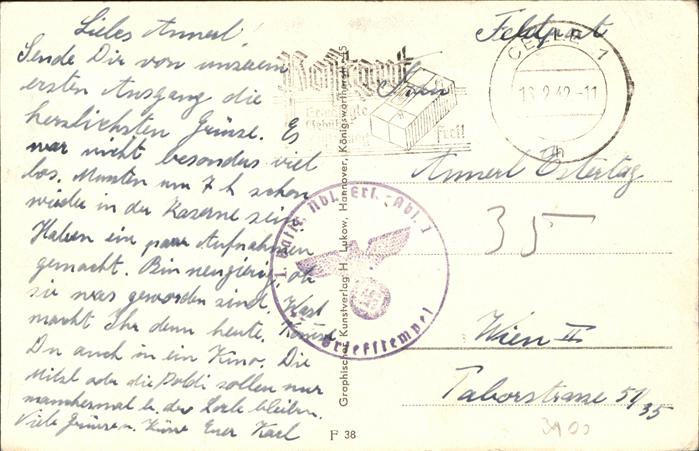 Liebes Annerl,
Sende Dir von unserem
ersten Ausgang die
herzlichsten Grüsse. Es
war nicht besonders viel
los. Mussten um 7 h schon
wieder in der Kaserne sein.
Haben ein paar Aufnahmen
gemacht. Bin neugierig, ob
sie was geworden sind. Was
macht Ihr denn heute.
Du auch in ein Kino. Die
Mitzl oder die Poldi sollen nur
manchmal b. der Lorle bleiben.
Viele Grüsse u. Küsse Euer Karl
Feldpost
CELLE 1
13.2.42-11
Annerl Ostertag
35
Wien II
Taborstrasse 51/35
Abt. 1
Briefstempel
Graphischer Kunstverlag H. Lukow, Hannover, Königswortherstr. 15
F 38